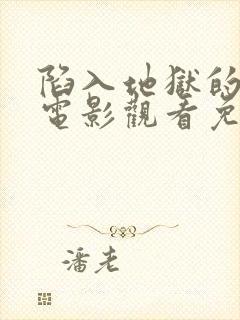 陷入地獄的
電影觀看免
潘老